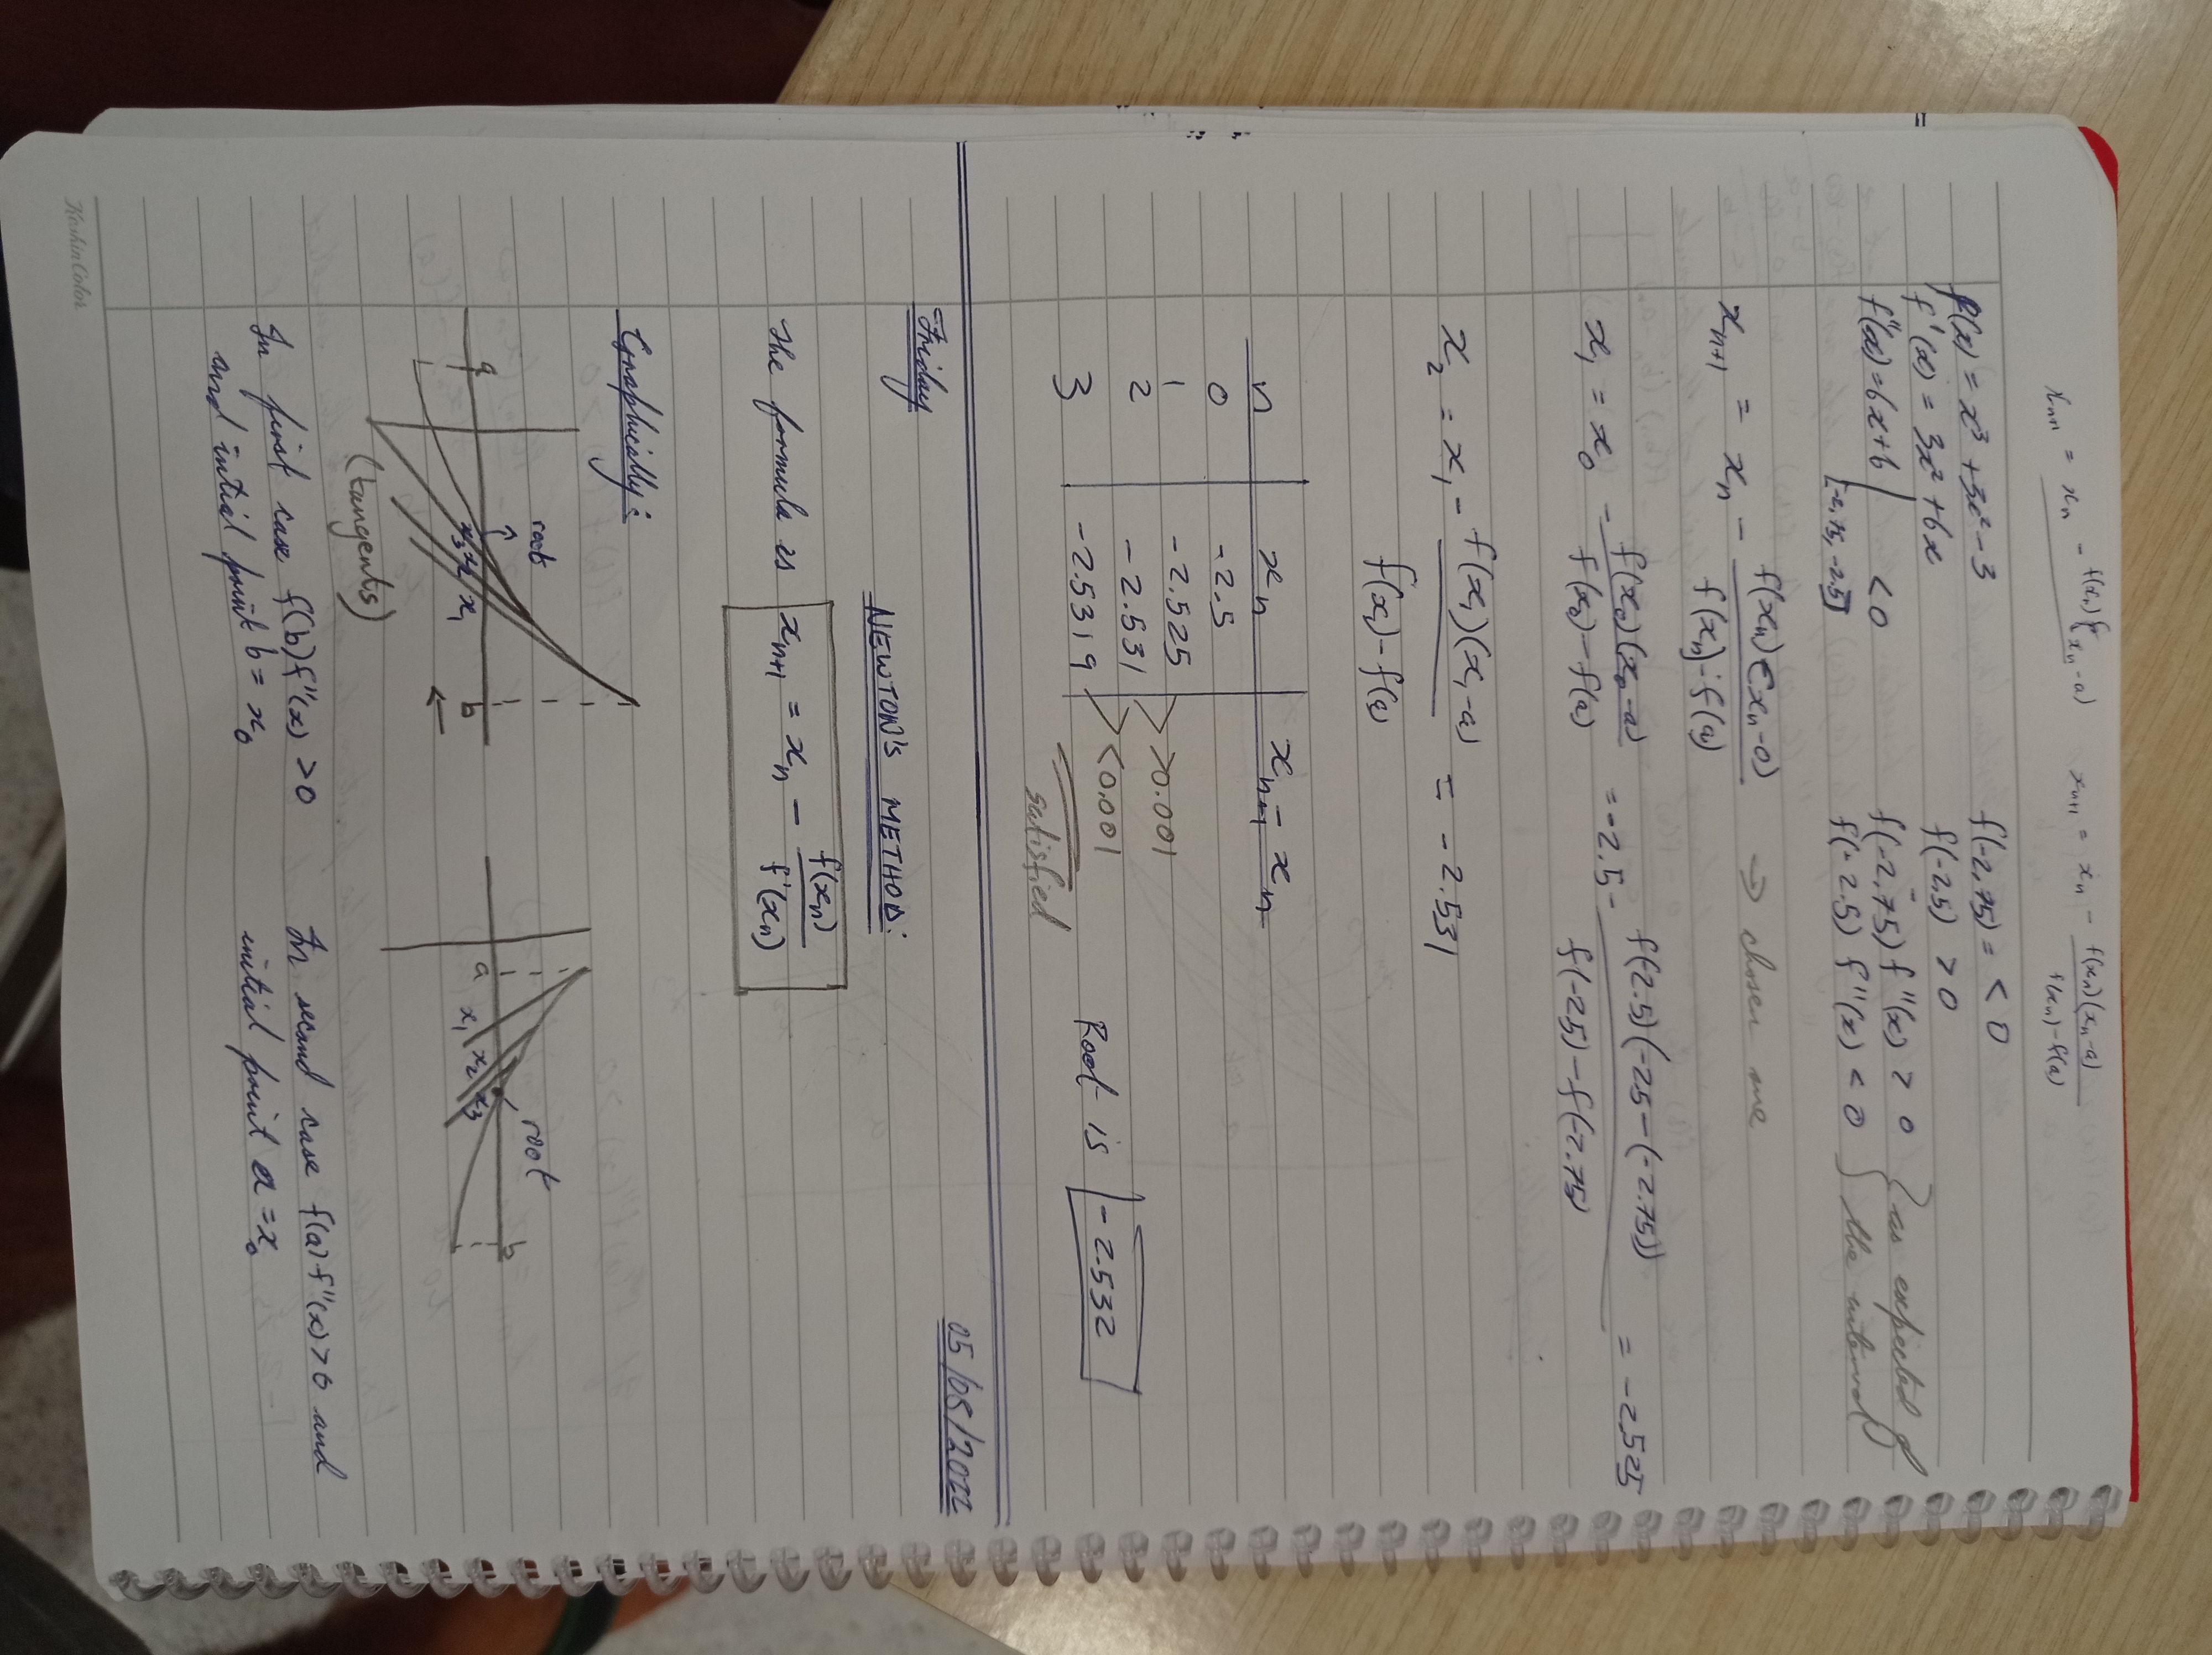 x_{n+1} = x_n - f(x_n)(x_n - a)    x_{n+1} = x_n - f(x_n)(x_n - a) / f(x_n) - f(a)
f(x) = x³ + 3x² - 3    f(-2,75) = < 0
f'(x) = 3x² + 6x    f(-2.5) > 0
f''(x) = 6x + 6 | [-2,75, -2.5] < 0    f(-2,75) f''(x) > 0 } as expected of
f(-2.5) f''(x) < 0 } the interval
x_{n+1} = x_n - f(x_n)(x_n - a) / f(x_n) - f(a)    → chosen one
x_1 = x_0 - f(x_0)(x_0 - a) / f(x_0) - f(a) = -2.5 - f(-2.5)(-2.5 - (-2.75)) / f(-2.5) - f(-2.75) = -2.525
x_2 = x_1 - f(x_1)(x_1 - a) / f(x_1) - f(a) = -2.531
n    x_n    x_{n+1} - x_n
0    -2.5
1    -2.525
>0.001
2    -2.531
<0.001
3    -2.5319    Root is -2.532
satisfied
05/08/2022
Friday
NEWTON's METHOD:
The formula is x_{n+1} = x_n - f(x_n) / f'(x_n)
Graphically:
root
a    x_3 x_2 x_1    b
(tangents)
a    x_1 x_2 x_3    root    b
In first case, f(b) f''(x) > 0
and initial point b = x_0
In second case f(a) f''(x) > 0 and
initial point a = x_0
KoshinColor